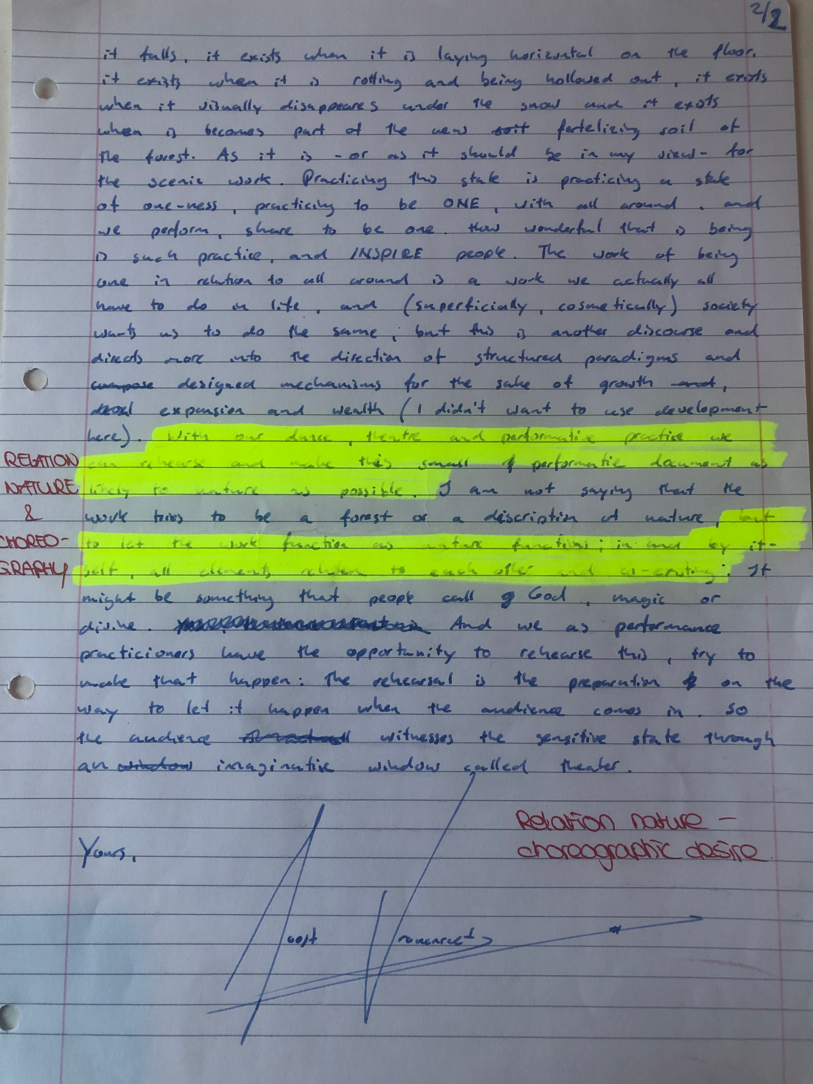 2/2
it falls, it exists when it is laying horizontal on the floor,
it exists when it is rotting and being hollowed out, it exists
when it visually disappeares under the snow and it exists
when is becomes part of the new soil fertelizing soil of
the forest. As it is - or as it should be in my view - for
the scenic work. Practicing this state is practicing a state
of one-ness, practicing to be ONE, with all around. and
we perform, share to be one. How wonderful that is being
is such practice, and INSPIRE people. The work of being
one in relation to all around is a work we actually all
have to do in life, and (superficially, cosmetically) society
wants us to do the same, but this is another discourse and
directs more into the direction of structured paradigms and
designed mechanims for the sake of growth and,
expansion and wealth (I didn't want to use development
here). With our dance, theatre and performative practice we
RELATION can rehearse and make this small performatic document as
NATURE likely to nature as possible. I am not saying that the
& work tries to be a forest or a description of nature, but
CHOREO- to let the work function as nature functions; in and by it-
GRAPHY self, all elements relation to each other and co-creating; It
might be something that people call God, magic or
divine. And we as performance
practicioners have the opportunity to rehearse this, try to
make that happen: The rehearsal is the preparation on the
way to let it happen when the audience comes in. So
the audience witnesses the sensitive state through
an imaginative window called theater.
Relation nature -
choreographic desire
Yours,